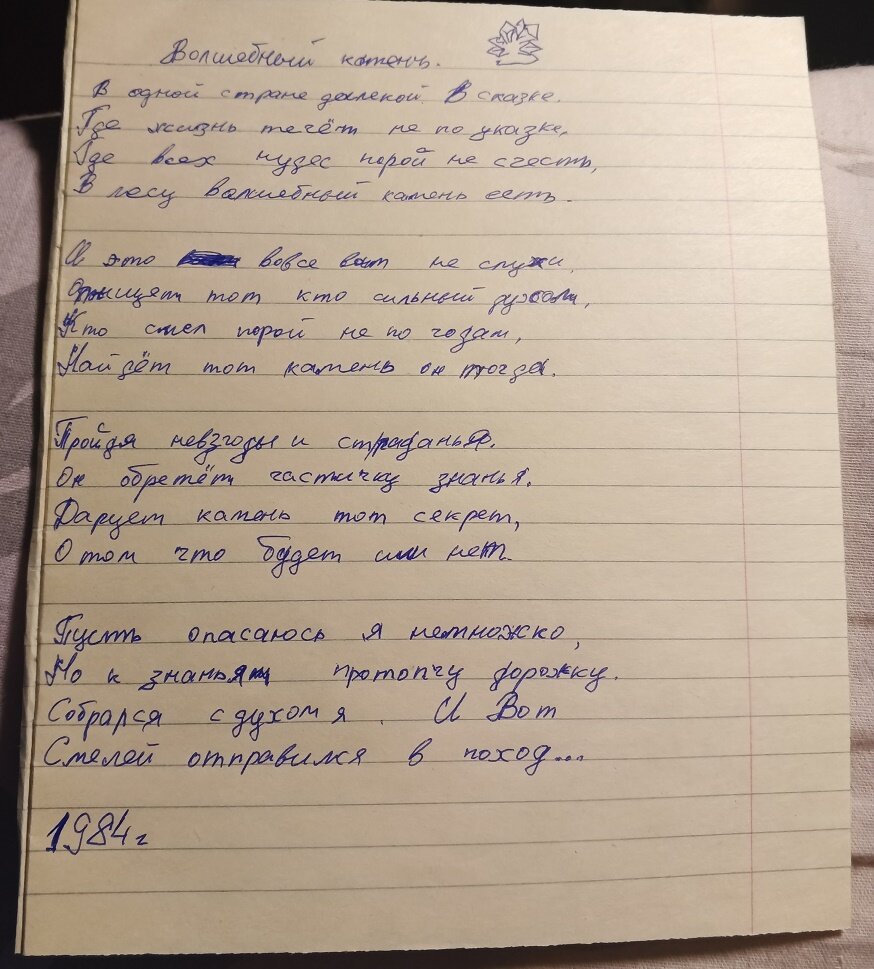 Волшебный камень.
В одной стране далекой. В сказке.
Где жизнь течёт не по указке,
Где всех чудес порой не счесть,
В лесу волшебный камень есть.
И это вовсе вот не слухи.
Отыщет тот кто сильный духом,
Кто смел порой не по годам,
Найдёт тот камень он тогда.
Пройдя невзгоды и страданья.
Он обретёт частичку знанья.
Дарует камень тот секрет,
О том что будет или нет.
Пусть опасаюсь я немножко,
Но к знаньям протопчу дорожку.
Собрался с духом я. И Вот
Смелей отправился в поход...
1984г